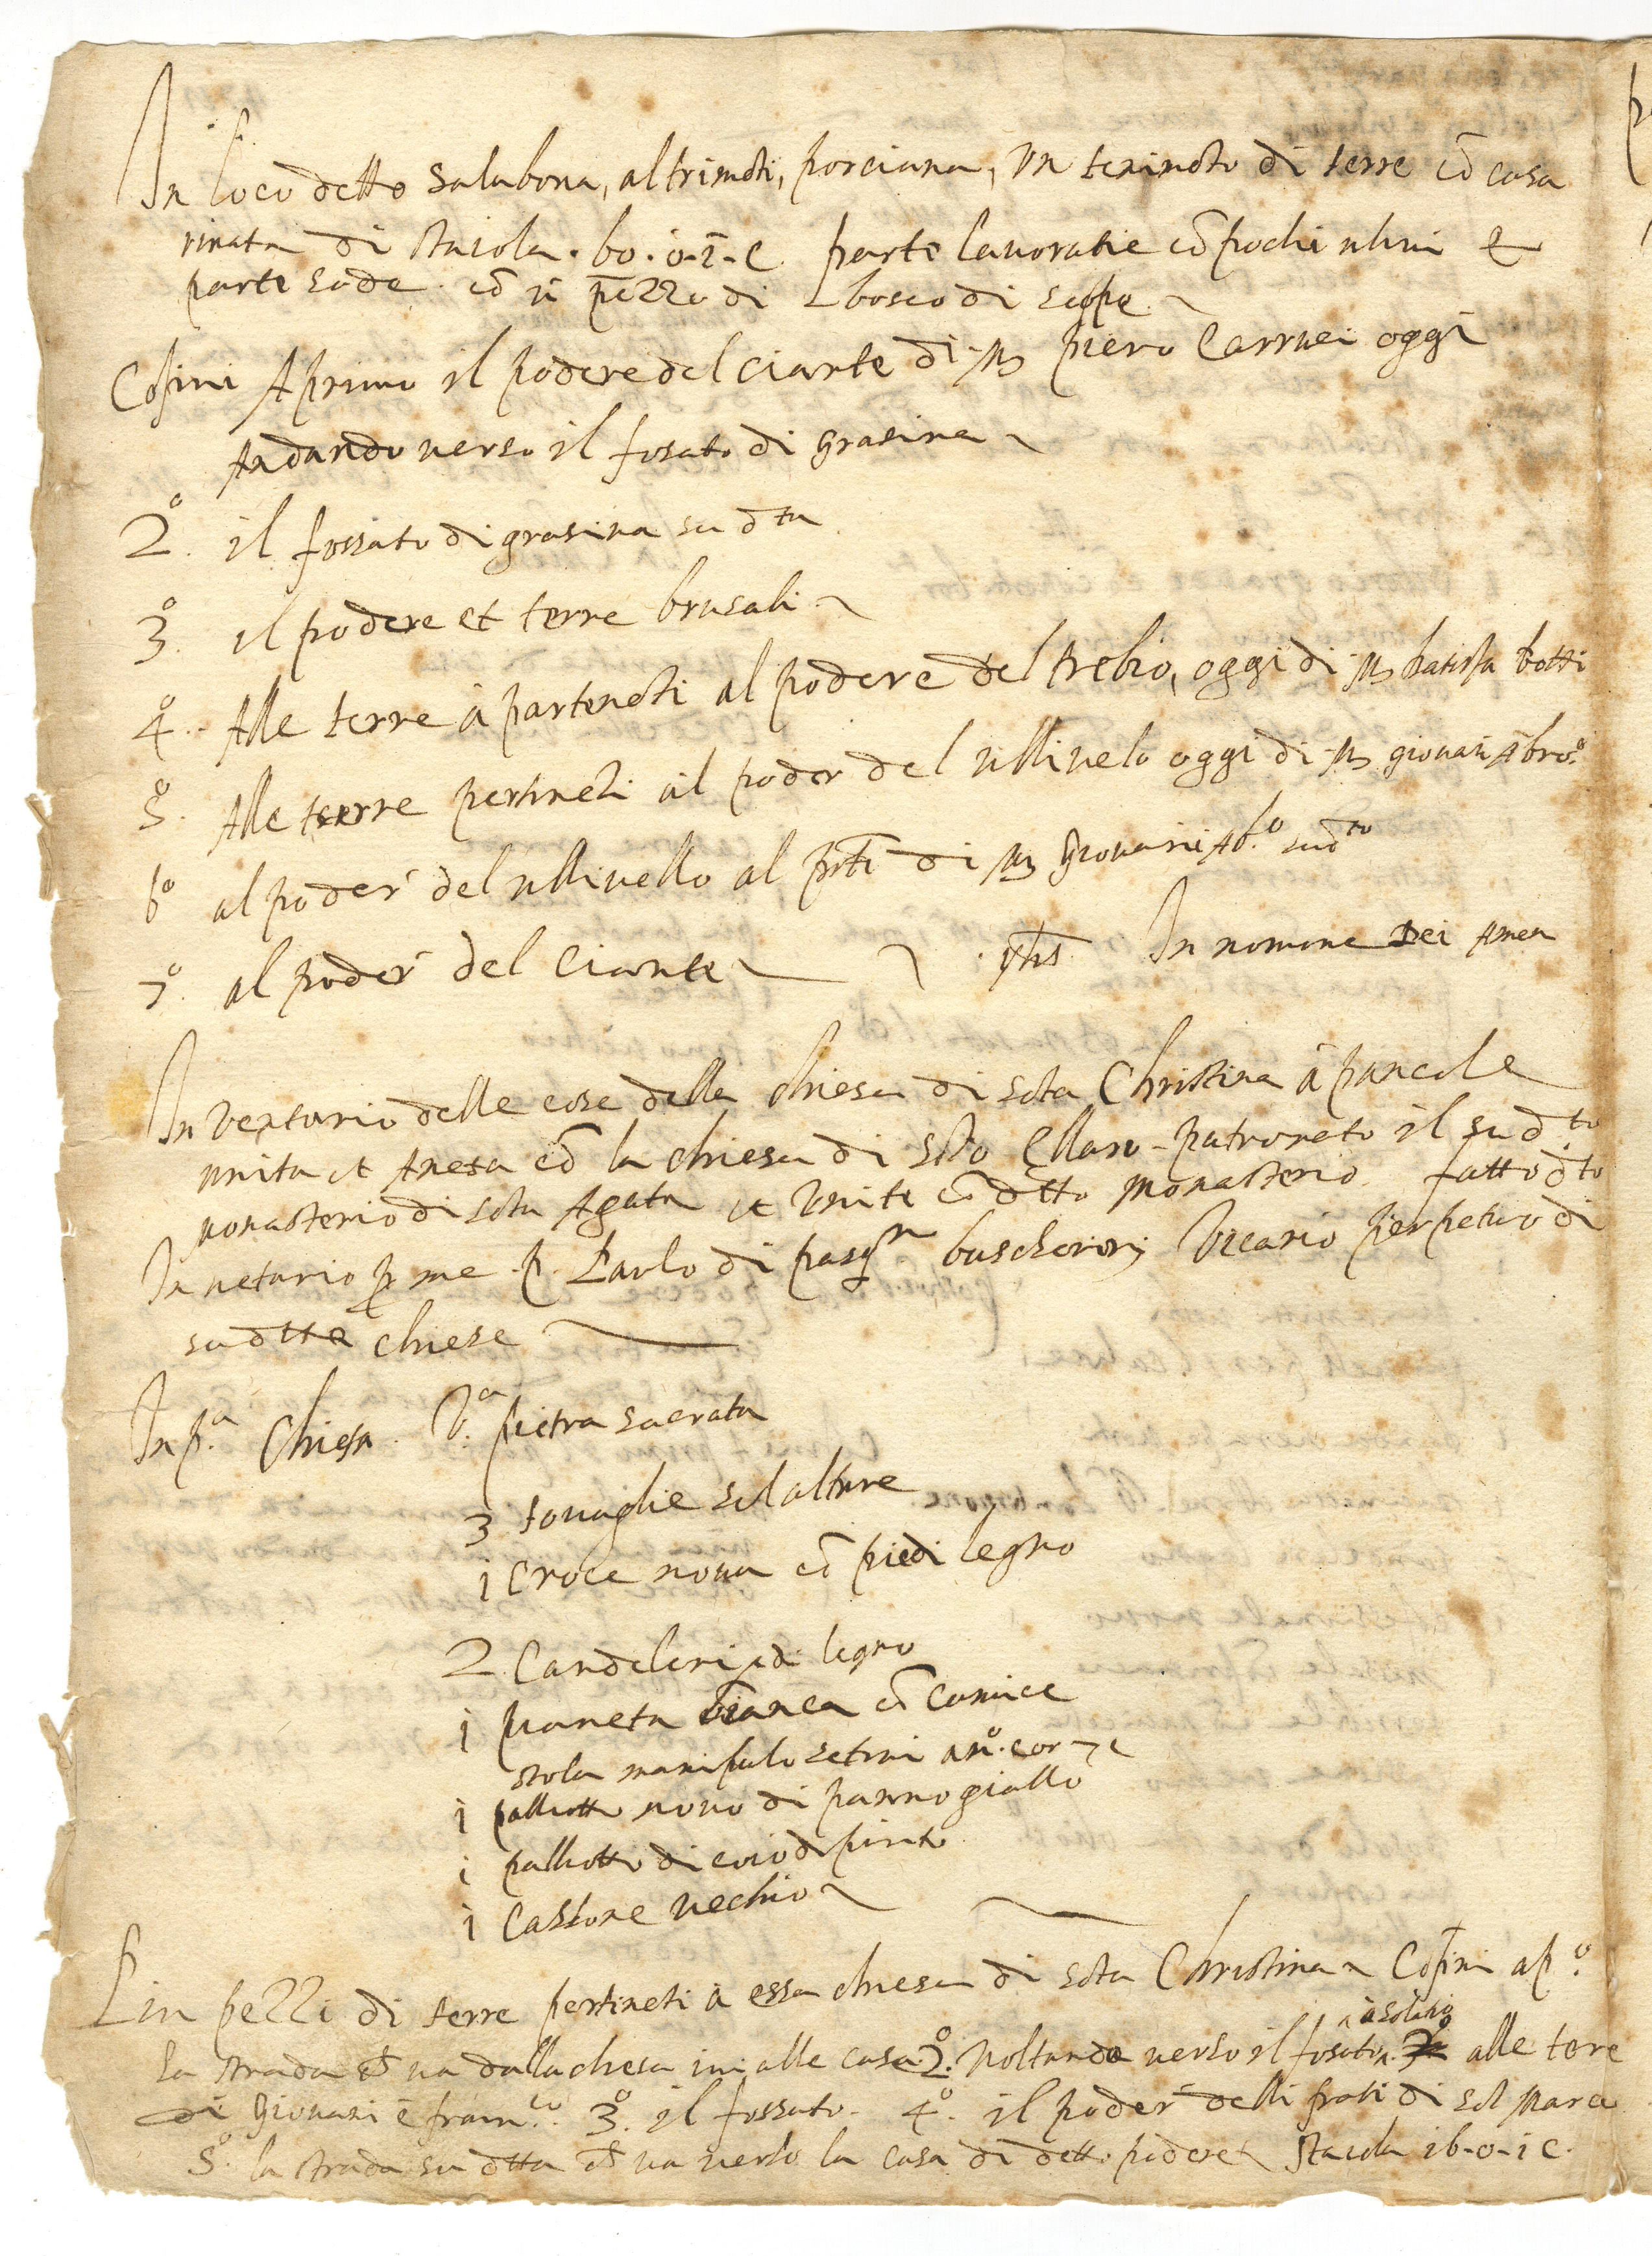 In loco detto salabona, altrimēti, porciana, un tenimēto di terre cō casa
rinata di staiola . 60 . 0 - i - c parte lavoratie cō pochi ulivi e
parte sode cō ū pezzo di bosco di scope
Cōfini A primo il podere del ciante di m piero Carnnei oggi
Andando verso il fosato di grasina
2º. il fossato di grasina su dta
3º. il podere et terre brusali
4º. Alle terre à partenēti al podere del trebio, oggi di m batista botti
5º. Alle terre pertinēti al poder del ullivelo oggi di m giovāni Abro.º
6º al poder del ullivello al pnti di m Giovāni Ab.º sudto
7º. al poder del Ciante yhs In nomine Dei Amen
Inventario delle cose della chiesa di sāta Christina à pancole
unita et Anesa cō la chiesa di sāto Ellaro - patronato il sudto
monasterio di sāta Agata et unite cō dtto monasterio. fatto dto
Invetario p me p. Paulo di pasqn buscherinj Vicario perpetuo di
sudtte chiese
In p.a Chiesa. Va. pietra sacrata
3 tovaglie sul altare
1 Croce nova cō piedi legno
2 Candelieri di legno
1 pianeta bianca cō camice
stola manipulo
1 palliotto novo di panno giallo
1 palliotto di coio dipinto
1 Cassone vechio
Piu pezzi di terre pertinēti à essa chiesa di sāta Christina Cōfini a p.º
la strada ch va dalla chiesa ivi alle case 2º. voltando verso il fosato à solatio alle tere
di Giovani e franco. 3º. il fossato - 4º. il poder delli frati di sā Marco
5º. la strada su dtta ch va verso la casa di detto podere staiola 16 - 0 - i c.